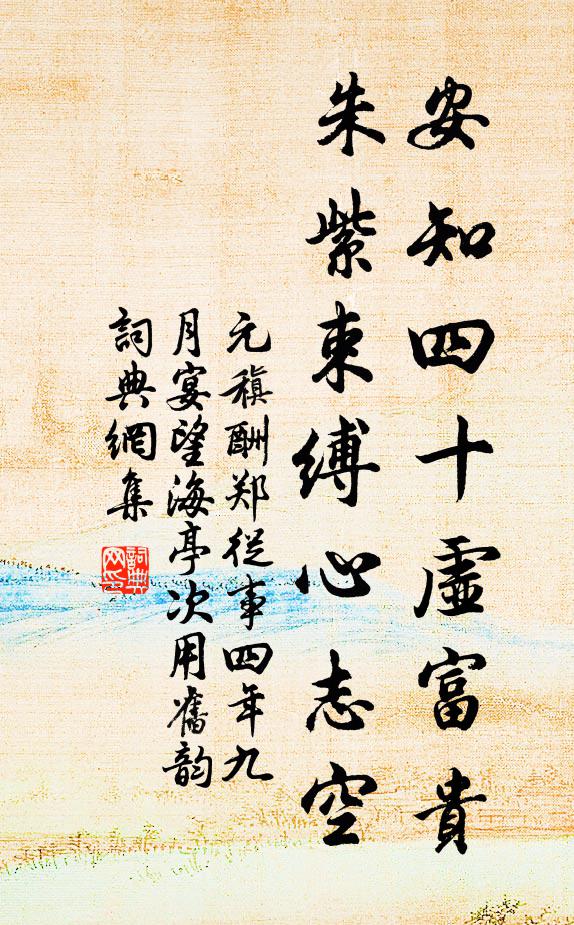 安知四十虛富貴
朱紫束縛心志空
元稹酬郑從事四年九
月宴望海亭次用舊韵
詞典網集
詞典网印